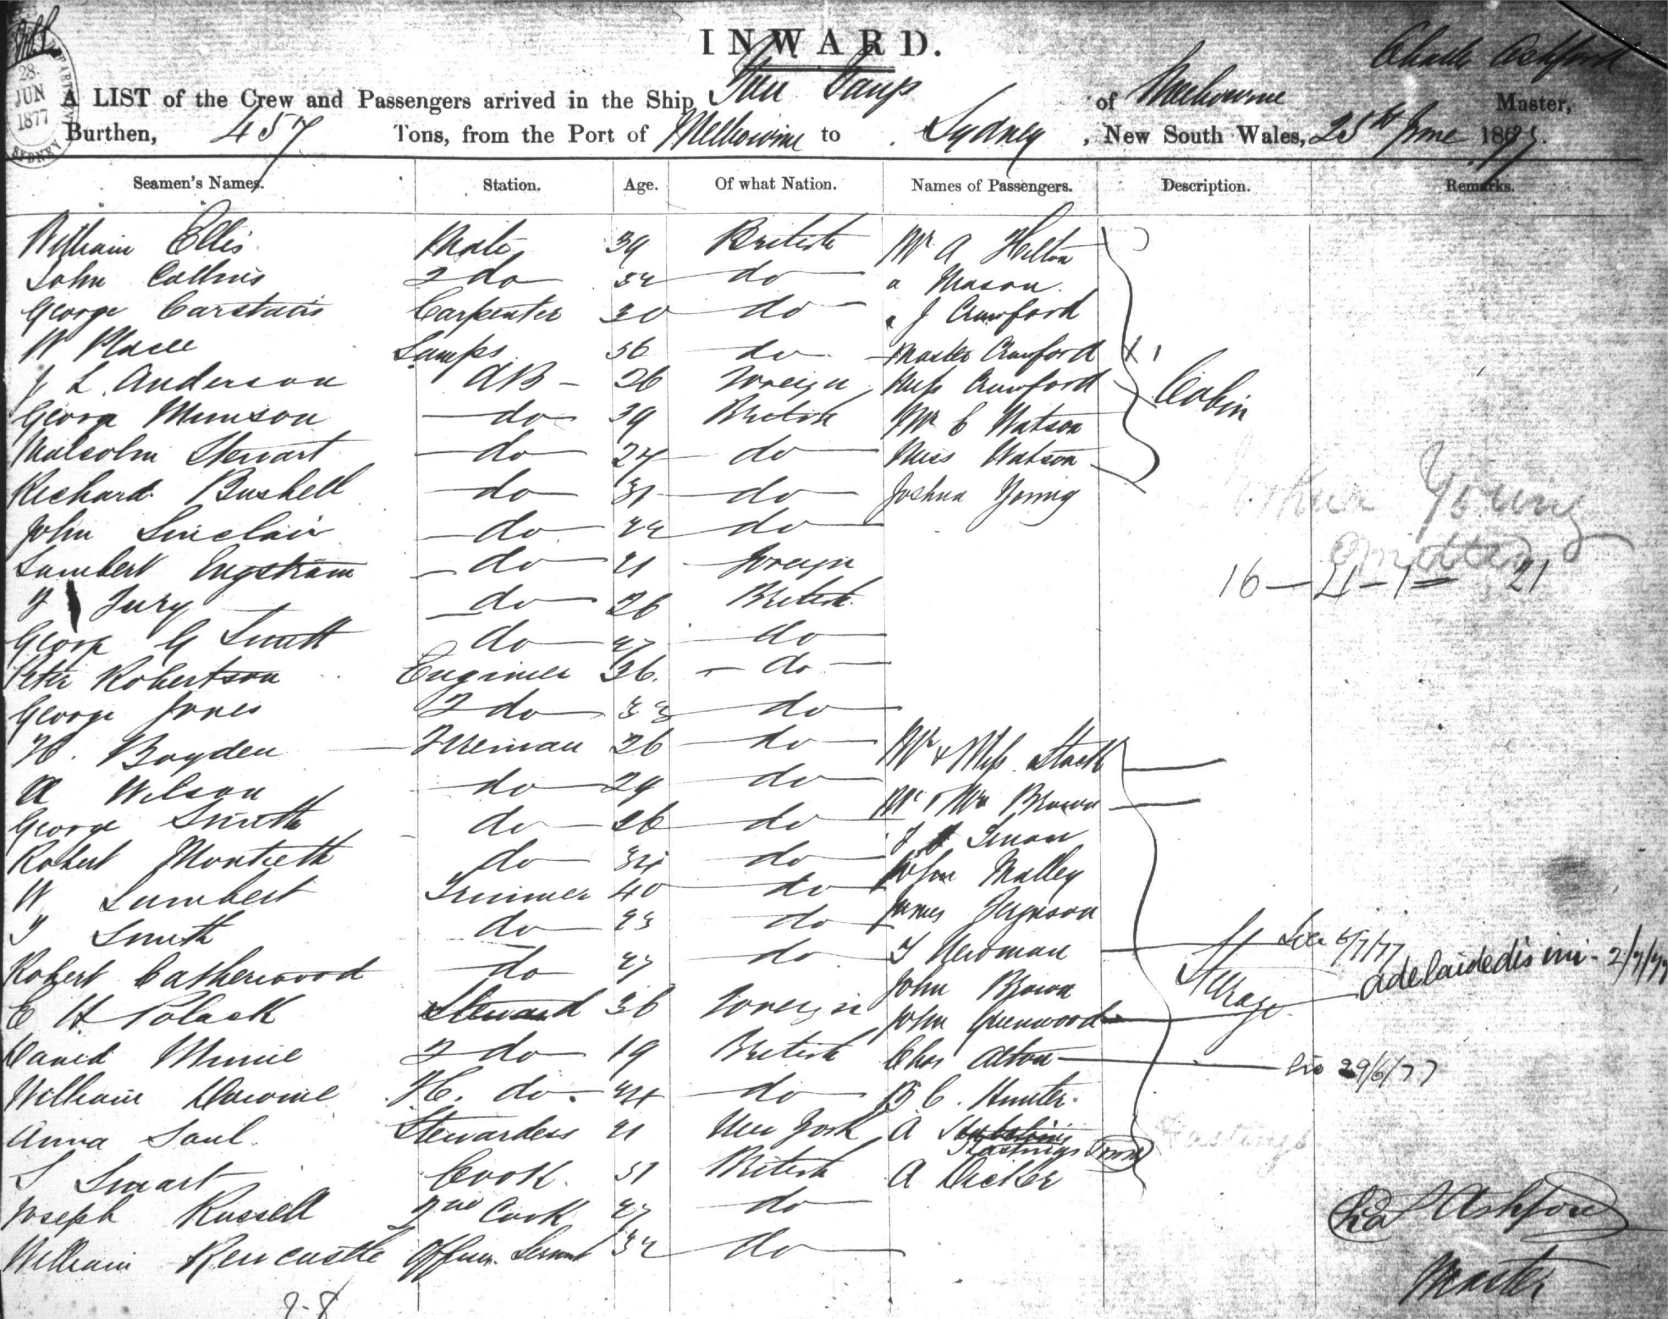 INWARD.
28 JUN 1877
SYDNEY
Charles Ashford
A LIST of the Crew and Passengers arrived in the Ship of Melbourne Master,
Burthen, 457 Tons, from the Port of Melbourne to Sydney, New South Wales, 25th June 1877.
Seamen's Names. Station. Age. Of what Nation. Names of Passengers. Description. Remarks.
William Ellis Mate 39 British Mr A Hilton
John Collins 2 do do a Mason
George Carstairs Carpenter 30 do J Crawford
W Place Lamps 36 do Master Crawford
J L Anderson AB 26 Foreign Miss Crawford Cabin
George Munson do 29 British Mr C Watson
Malcolm Stewart do 27 do Miss Watson
Richard Bushell do 31 do Joshua Young
John Sinclair do 22 do Young
Lambert Engstram do 21 Foreign omitted
16 - 4 - 1 = 21
F Jury do 26 British
George G Smith do 27 do
Peter Robertson Engineer 36 do
George Jones 2 do 33 do
H. Boyden Fireman 26 do Mr & Miss Stack
A Wilson do 29 do Mr & Mrs Brown
George Smith do 26 do
Robert Montieth do 34 do John Malley
W Lambert Trimmer 40 do James Ferguson
T Smith do 23 do T Newman 6/7/77
Robert Catherwood do 27 do John Brown Steerage Adelaide 2/7/77
E H Polack Steward 36 Foreign John Greenwood
David Minnie 2 do 19 British Chas Alton 29/6/77
William Downie do. 24 do B C. Hunter
Anna Saul. Stewardess 21 New York A Hastings Hastings
S Smart Cook. 31 British A Dicker
Joseph Russell 2nd Cook 27 do Chas Ashford
William Rencastle Officers Servant 32 do Master